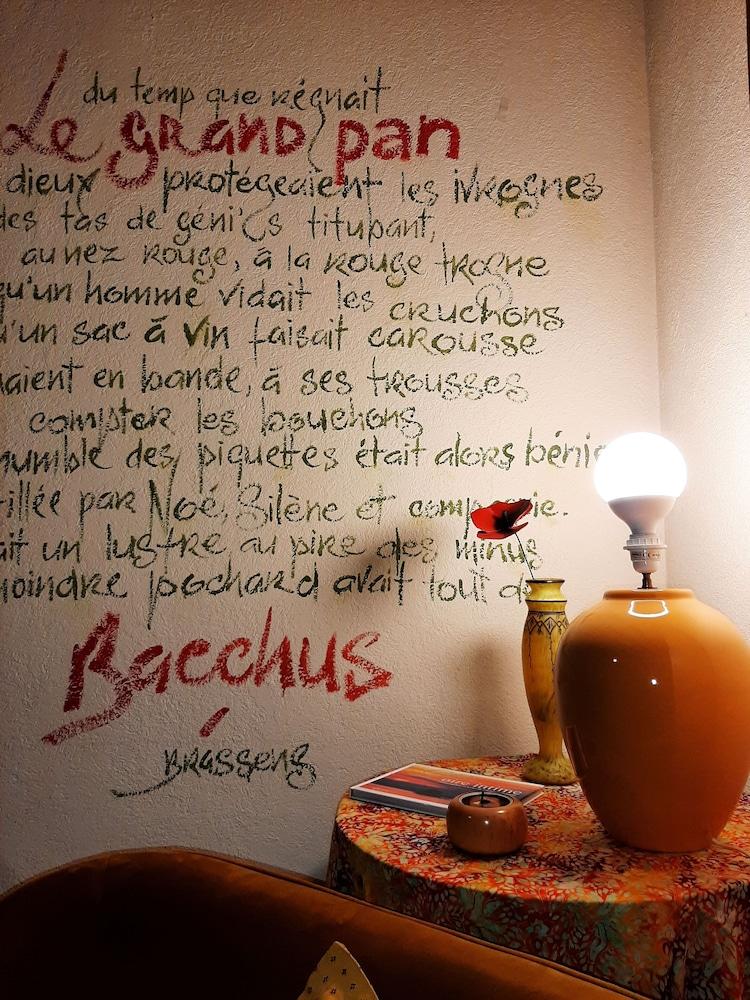 du temp que régnait
Le grand pan
dieux protégeaient les ivrognes
des tas de génies titupant,
au nez rouge, à la rouge trogne
qu'un homme vidait les cruchons
u'un sac à vin faisait carousse
naient en bande, à ses trousses
compter les bouchons
humble des piquettes était alors bénie
tillée par Noé, Silène et compagnie.
ait un lustre au pire des minus
moindre pochard avait tout de
Bacchus
Brassens